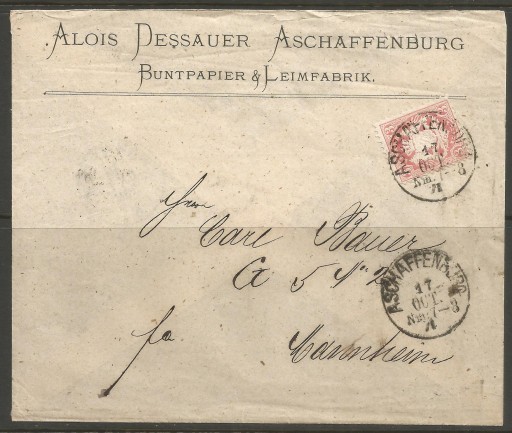 ALOIS DESSAUER ASCHAFFENBURG
BUNTPAPIER & LEIMFABRIK.
ASCHAFFENBURG
17.
OCT.
Nm. 7-8
71
Herrn
Carl Bauer
G 5 No 2
ASCHAFFENBURG
17.
OCT.
Nm. 7-8
71
fr
Mannheim